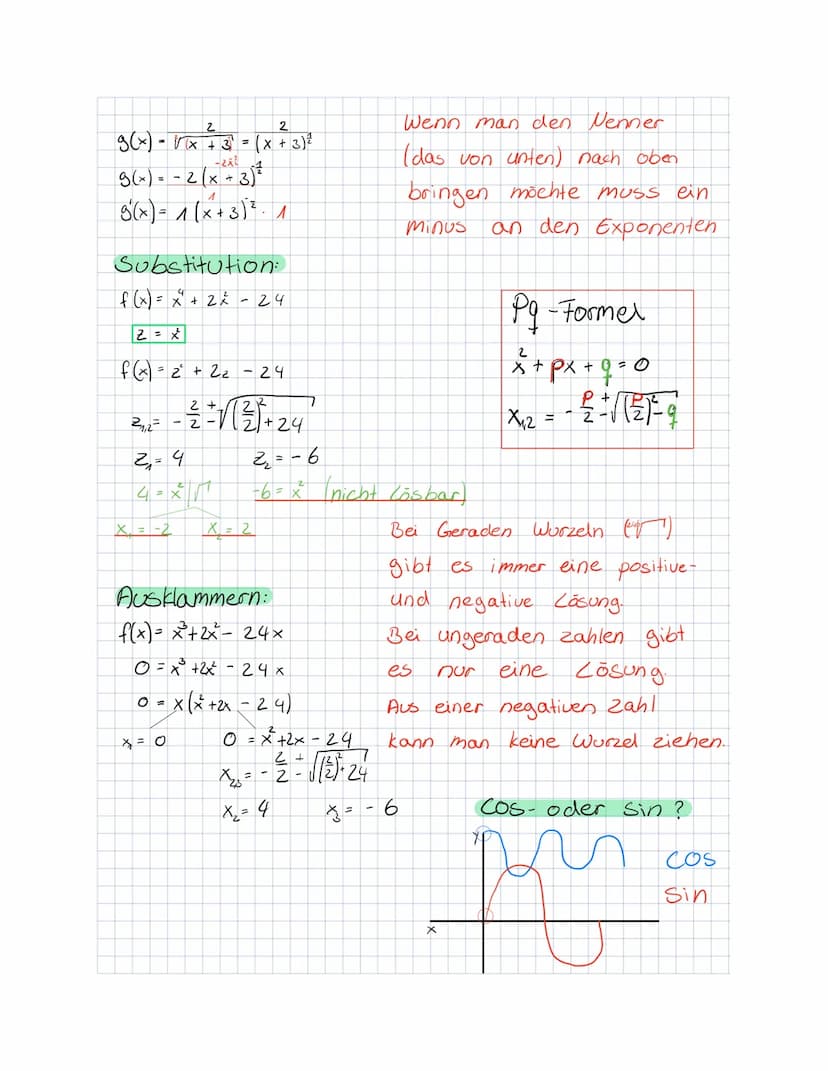 g(x) = 2/√(x + 3) = 2/(x + 3)^½
g(x) = - 2 (x + 3)^-½
g'(x) = 1 (x + 3)^-2 · 1
Wenn man den Nenner
(das von unten) nach oben
bringen möchte muss ein
minus an den Exponenten
Substitution:
f(x) = x⁴ + 2x² - 24
z = x²
f(x) = z² + 2z - 24
z₁,₂ = - 2/2 ± √((2/2)² + 24)
z₁ = 4 z₂ = - 6
4 = x² |√ -6 = x² (nicht lösbar)
x₁ = -2 x₂ = 2
Pq - Formel
x² + px + q = 0
x₁,₂ = - p/2 ± √((p/2)² - q)
Bei Geraden Wurzeln (√)
gibt es immer eine positive-
und negative Lösung.
Bei ungeraden zahlen gibt
es nur eine Lösung.
Aus einer negativen Zahl
kann man keine Wurzel ziehen.
Ausklammern:
f(x) = x³ + 2x² - 24x
0 = x³ + 2x² - 24x
0 = x(x² + 2x - 24)
x₁ = 0 0 = x² + 2x - 24
x₂,₃ = - 2/2 ± √((2/2)² + 24
x₂ = 4 x₃ = - 6
Cos- oder Sin ?
y
cos
sin
x